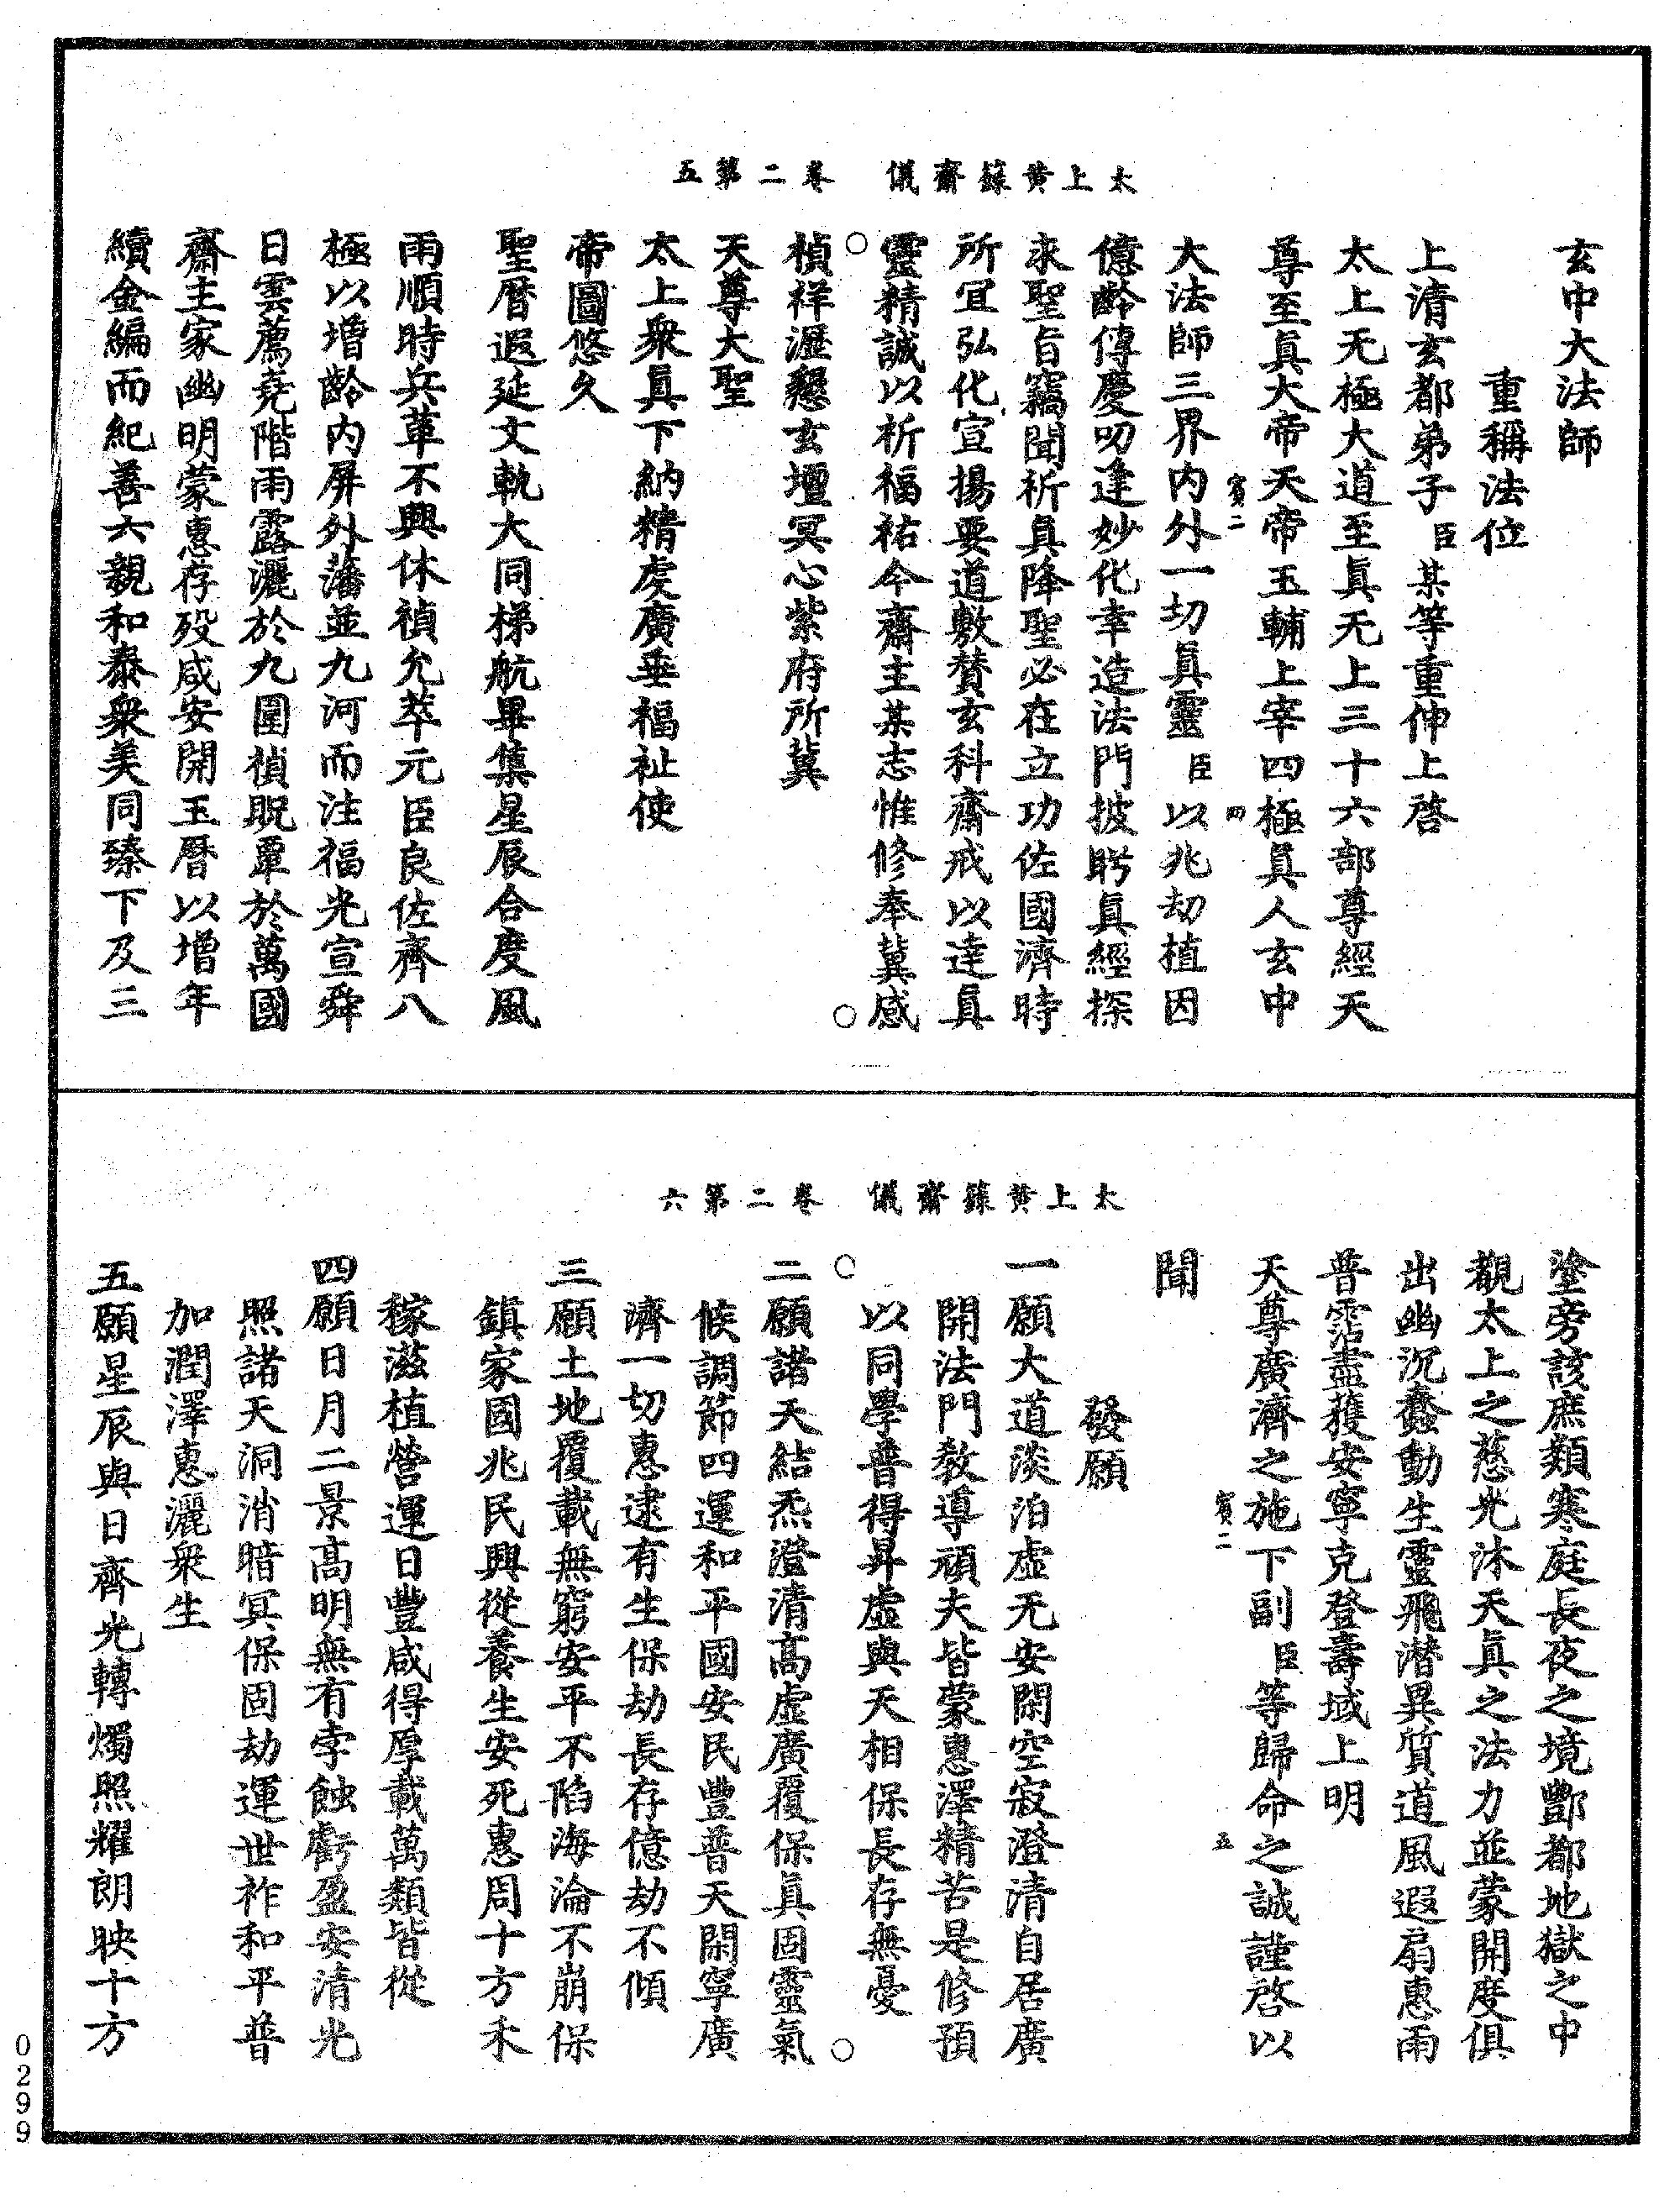 太上黃籙齋儀　卷二第五
玄中大法師
重稱法位
上清玄都弟子臣某等重伸上啓
太上无極大道至眞无上三十六部尊經天
尊至眞大帝天帝玉輔上宰四極眞人玄中
賓二　四
大法師三界內外一切眞靈臣以兆劫植因
億齡傳慶叨逢妙化幸造法門披眄眞經探
求聖旨竊聞祈眞降聖必在立功佐國濟時
所冝弘化宣揚要道敷賛玄科齋戒以達眞
靈精誠以祈福祐今齋主某志惟修奉冀感
楨祥瀝懇玄壇冥心紫府所冀
天尊大聖
太上衆眞下納精虔廣垂福祉使
帝圖悠久
聖曆遐延文軌大同梯航畢集星辰合度風
雨順時兵革不興休禎允萃元臣良佐齊八
極以增齡內屏外藩並九河而注福光宣舜
日雲薦堯階雨露灑於九圍禎貺覃於萬國
齋主家幽明蒙惠存歿咸安開玉曆以增年
續金編而紀善六親和泰衆美同臻下及三
太上黃籙齋儀　卷二第六
塗旁該庶類寒庭長夜之境酆都地獄之中
覩太上之慈光沐天眞之法力並蒙開度俱
出幽沉蠢動生靈飛潛異質道風遐扇惠雨
普霑盡獲安寧克登壽域上明
天尊廣濟之施下副臣等歸命之誠謹啓以
賓二　五
聞
發願
一願大道淡泊虛无安閑空寂澄清自居廣
開法門教導頑夫皆蒙惠澤精苦是修預
以同學普得昇虛與天相保長存無憂
二願諸天結炁澄清高虛廣覆保眞固靈氣
候調節四運和平國安民豐普天閑寧廣
濟一切惠逮有生保劫長存億劫不傾
三願土地覆載無窮安平不陷海淪不崩保
鎮家國兆民興從養生安死惠周十方禾
稼滋植營運日豐咸得厚載萬類皆從
四願日月二景高明無有孛蝕虧盈安清光
照諸天洞消暗冥保固劫運世祚和平普
加潤澤惠灑衆生
五願星辰與日齊光轉燭照耀朗映十方
0299